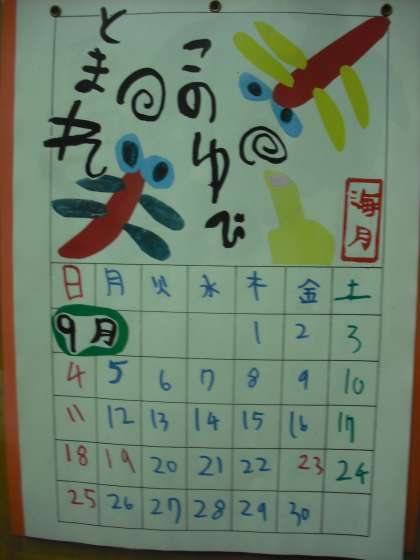 このゆび
とまれ
海月
日 月 火 水 木 金 土
9月 1 2 3
4 5 6 7 8 9 10
11 12 13 14 15 16 17
18 19 20 21 22 23 24
25 26 27 28 29 30